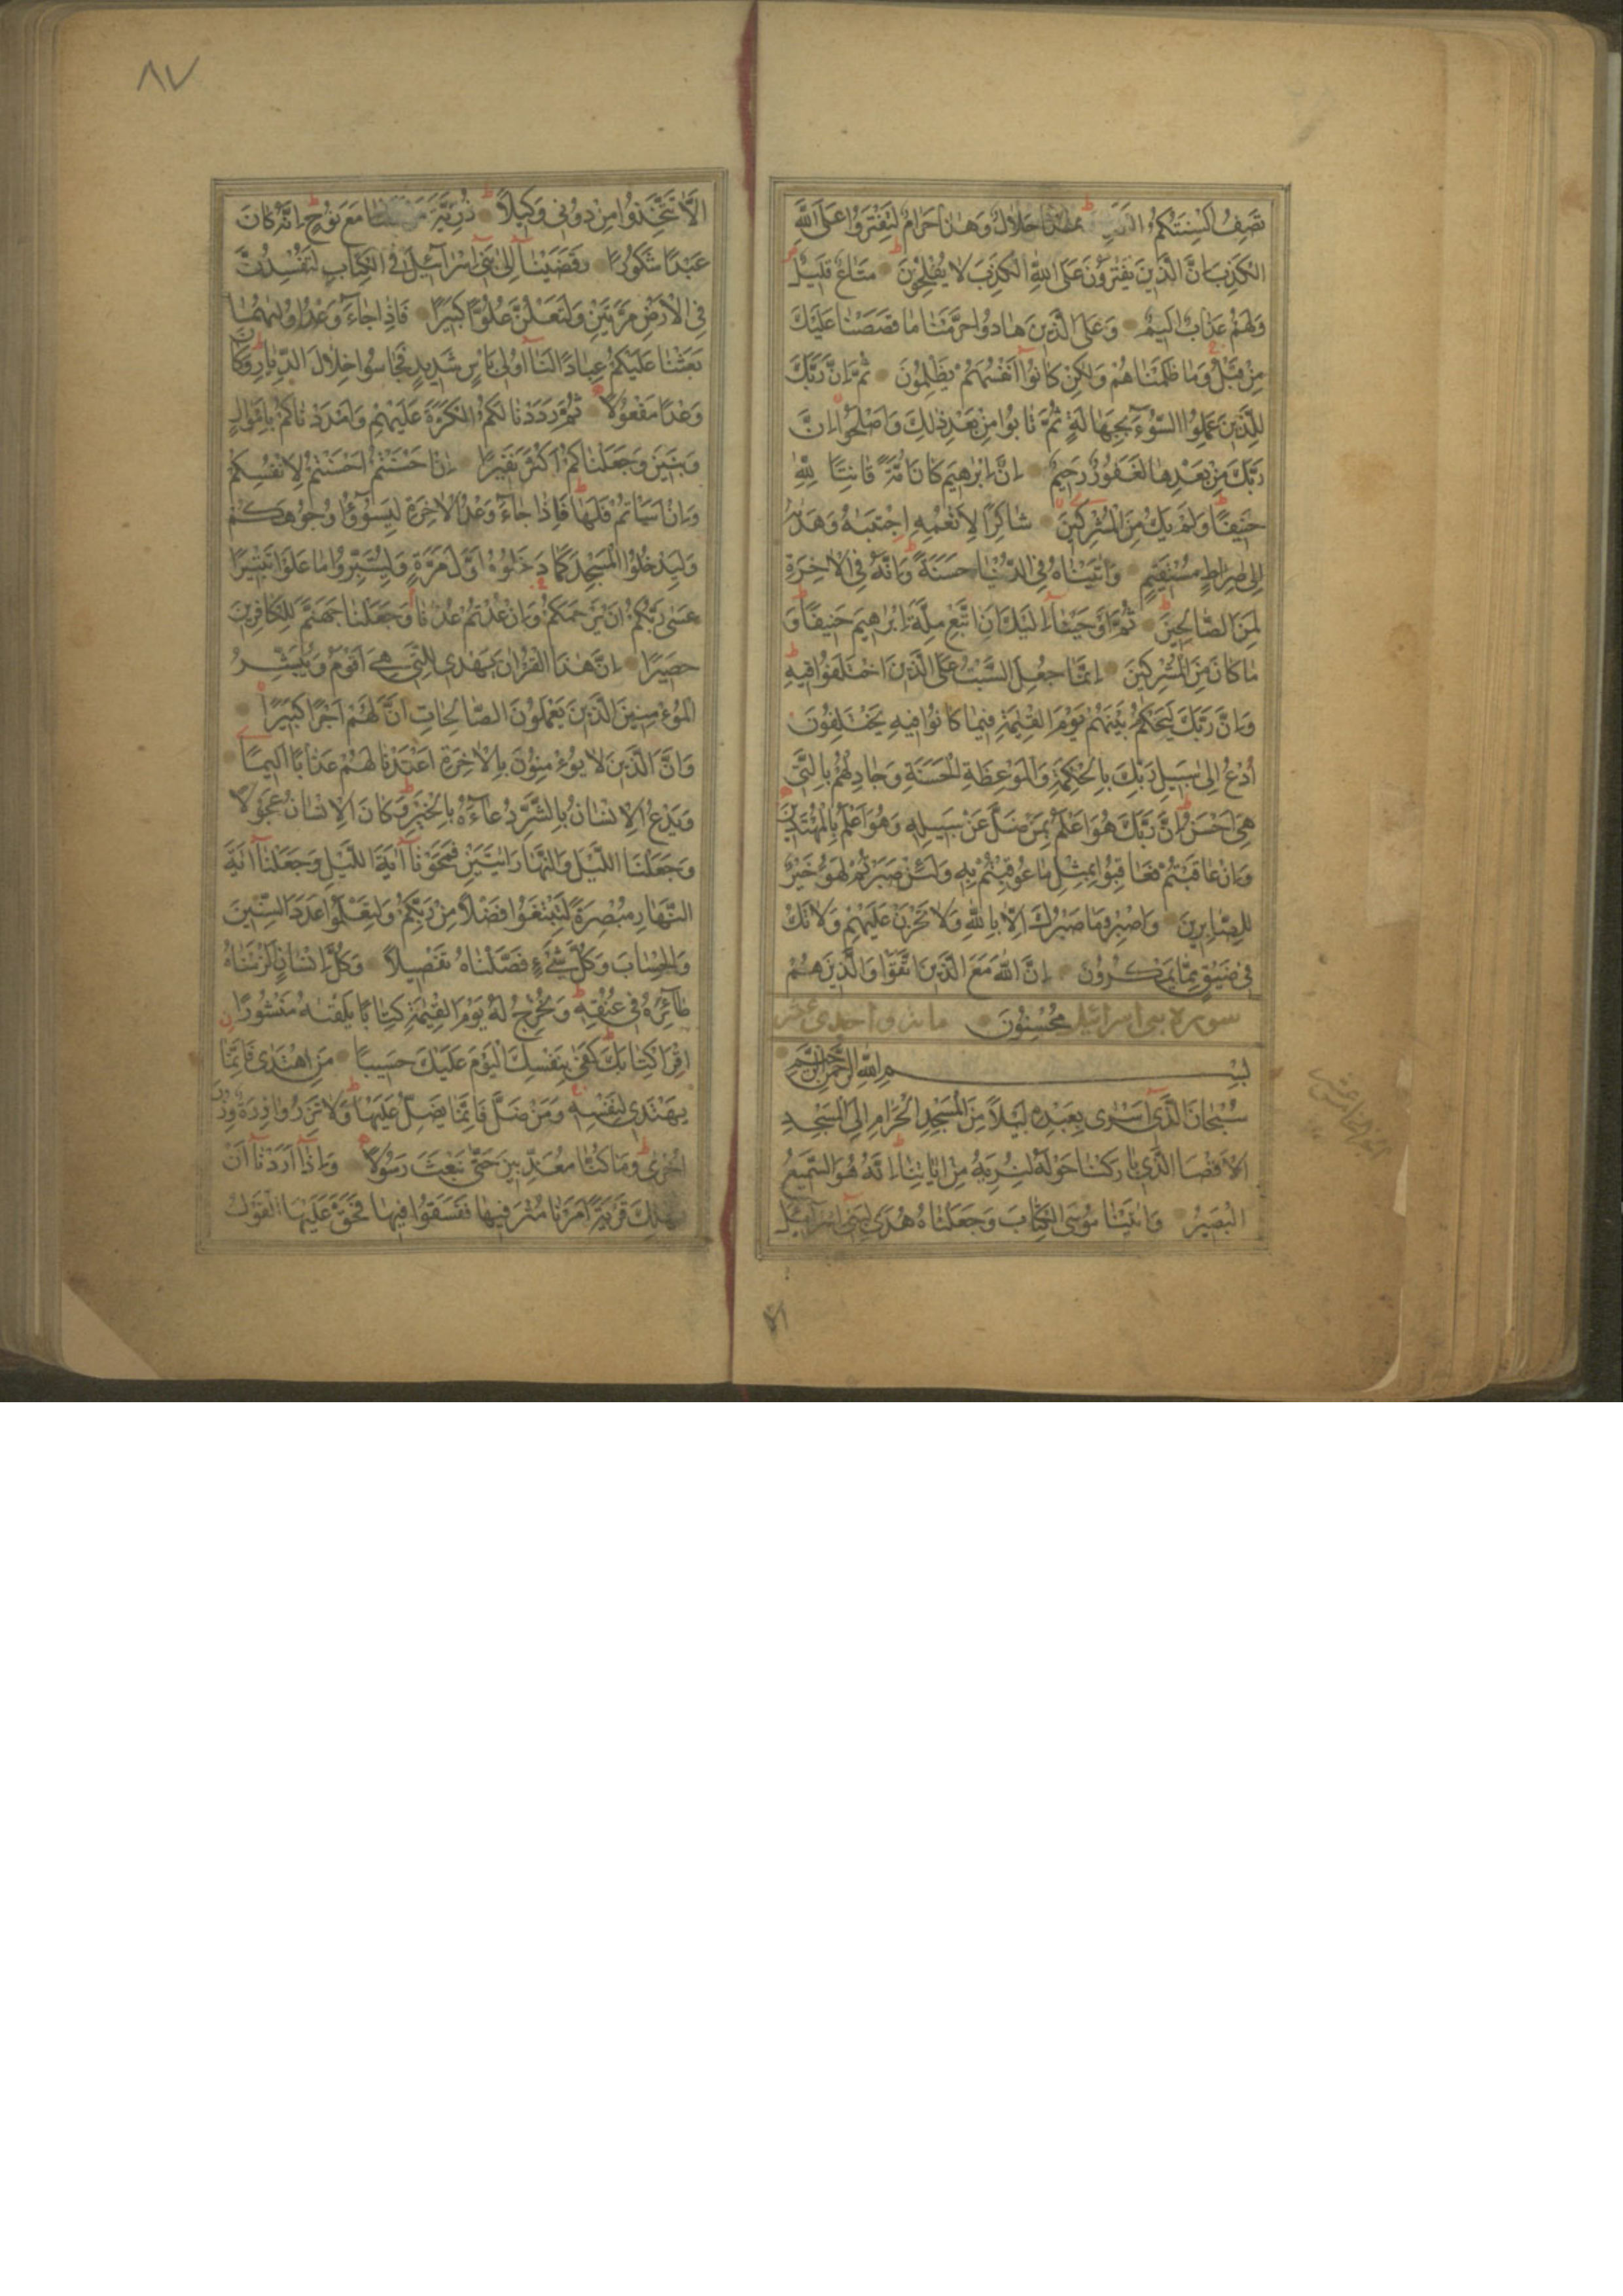 تَصِفُ اَلْسِنَتُكُمُ هٰذَا حَلَالٌ وَهٰذَا حَرَامٌ لِتَفْتَرُوا عَلَى اللّٰهِ
الْكَذِبَ اِنَّ الَّذِينَ يَفْتَرُونَ عَلَى اللّٰهِ الْكَذِبَ لَا يُفْلِحُونَ مَتَاعٌ قَلِيلٌ
وَلَهُمْ عَذَابٌ اَلِيمٌ وَعَلَى الَّذِينَ هَادُوا حَرَّمْنَا مَا قَصَصْنَا عَلَيْكَ
مِنْ قَبْلُ وَمَا ظَلَمْنَاهُمْ وَلٰكِنْ كَانُوا اَنْفُسَهُمْ يَظْلِمُونَ ثُمَّ اِنَّ رَبَّكَ
لِلَّذِينَ عَمِلُوا السُّوٓءَ بِجَهَالَةٍ ثُمَّ تَابُوا مِنْ بَعْدِ ذٰلِكَ وَاَصْلَحُوا اِنَّ
رَبَّكَ مِنْ بَعْدِهَا لَغَفُورٌ رَحِيمٌ اِنَّ اِبْرٰهِيمَ كَانَ اُمَّةً قَانِتًا لِلّٰهِ
حَنِيفًا وَلَمْ يَكُ مِنَ الْمُشْرِكِينَ شَاكِرًا لِاَنْعُمِهِ اِجْتَبٰيهُ وَهَدٰيهُ
اِلٰى صِرَاطٍ مُسْتَقِيمٍ وَاٰتَيْنَاهُ فِي الدُّنْيَا حَسَنَةً وَاِنَّهُ فِي الْاٰخِرَةِ
لَمِنَ الصَّالِحِينَ ثُمَّ اَوْحَيْنَآ اِلَيْكَ اَنِ اتَّبِعْ مِلَّةَ اِبْرٰهِيمَ حَنِيفًا وَ
مَا كَانَ مِنَ الْمُشْرِكِينَ اِنَّمَا جُعِلَ السَّبْتُ عَلَى الَّذِينَ اخْتَلَفُوا فِيهِ
وَاِنَّ رَبَّكَ لَيَحْكُمُ بَيْنَهُمْ يَوْمَ الْقِيٰمَةِ فِيمَا كَانُوا فِيهِ يَخْتَلِفُونَ
اُدْعُ اِلٰى سَبِيلِ رَبِّكَ بِالْحِكْمَةِ وَالْمَوْعِظَةِ الْحَسَنَةِ وَجَادِلْهُمْ بِالَّتِي
هِيَ اَحْسَنُ اِنَّ رَبَّكَ هُوَ اَعْلَمُ بِمَنْ ضَلَّ عَنْ سَبِيلِهِ وَهُوَ اَعْلَمُ بِالْمُهْتَدِينَ
وَاِنْ عَاقَبْتُمْ فَعَاقِبُوا بِمِثْلِ مَا عُوقِبْتُمْ بِهِ وَلَئِنْ صَبَرْتُمْ لَهُوَ خَيْرٌ
لِلصَّابِرِينَ وَاصْبِرْ وَمَا صَبْرُكَ اِلَّا بِاللّٰهِ وَلَا تَحْزَنْ عَلَيْهِمْ وَلَا تَكُ
فِي ضَيْقٍ مِمَّا يَمْكُرُونَ اِنَّ اللّٰهَ مَعَ الَّذِينَ اتَّقَوْا وَالَّذِينَ هُمْ
سورة بنى اسرائيل مُحْسِنُونَ مائة واحدى عشر
بِسْمِ اللّٰهِ الرَّحْمٰنِ الرَّحِيمِ
سُبْحَانَ الَّذِي اَسْرٰى بِعَبْدِهِ لَيْلًا مِنَ الْمَسْجِدِ الْحَرَامِ اِلَى الْمَسْجِدِ
الْاَقْصَا الَّذِي بَارَكْنَا حَوْلَهُ لِنُرِيَهُ مِنْ اٰيَاتِنَا اِنَّهُ هُوَ السَّمِيعُ
الْبَصِيرُ وَاٰتَيْنَا مُوسَى الْكِتَابَ وَجَعَلْنَاهُ هُدًى لِبَنِٓي اِسْرَآئِيلَ
٨٧
اَلَّا تَتَّخِذُوا مِنْ دُونِي وَكِيلًا ذُرِّيَّةَ مَنْ مَعَ نُوحٍ اِنَّهُ كَانَ
عَبْدًا شَكُورًا وَقَضَيْنَآ اِلٰى بَنِٓي اِسْرَآئِيلَ فِي الْكِتَابِ لَتُفْسِدُنَّ
فِي الْاَرْضِ مَرَّتَيْنِ وَلَتَعْلُنَّ عُلُوًّا كَبِيرًا فَاِذَا جَآءَ وَعْدُ اُولٰيهُمَا
بَعَثْنَا عَلَيْكُمْ عِبَادًا لَنَآ اُولِي بَاْسٍ شَدِيدٍ فَجَاسُوا خِلَالَ الدِّيَارِ وَكَانَ
وَعْدًا مَفْعُولًا ثُمَّ رَدَدْنَا لَكُمُ الْكَرَّةَ عَلَيْهِمْ وَاَمْدَدْنَاكُمْ بِاَمْوَالٍ
وَبَنِينَ وَجَعَلْنَاكُمْ اَكْثَرَ نَفِيرًا اِنْ اَحْسَنْتُمْ اَحْسَنْتُمْ لِاَنْفُسِكُمْ
وَاِنْ اَسَاْتُمْ فَلَهَا فَاِذَا جَآءَ وَعْدُ الْاٰخِرَةِ لِيَسُوٓؤُا وُجُوهَكُمْ
وَلِيَدْخُلُوا الْمَسْجِدَ كَمَا دَخَلُوهُ اَوَّلَ مَرَّةٍ وَلِيُتَبِّرُوا مَا عَلَوْا تَتْبِيرًا
عَسٰى رَبُّكُمْ اَنْ يَرْحَمَكُمْ وَاِنْ عُدْتُمْ عُدْنَا وَجَعَلْنَا جَهَنَّمَ لِلْكَافِرِينَ
حَصِيرًا اِنَّ هٰذَا الْقُرْاٰنَ يَهْدِي لِلَّتِي هِيَ اَقْوَمُ وَيُبَشِّرُ
الْمُؤْمِنِينَ الَّذِينَ يَعْمَلُونَ الصَّالِحَاتِ اَنَّ لَهُمْ اَجْرًا كَبِيرًا
وَاَنَّ الَّذِينَ لَا يُؤْمِنُونَ بِالْاٰخِرَةِ اَعْتَدْنَا لَهُمْ عَذَابًا اَلِيمًا
وَيَدْعُ الْاِنْسَانُ بِالشَّرِّ دُعَآءَهُ بِالْخَيْرِ وَكَانَ الْاِنْسَانُ عَجُولًا
وَجَعَلْنَا اللَّيْلَ وَالنَّهَارَ اٰيَتَيْنِ فَمَحَوْنَآ اٰيَةَ اللَّيْلِ وَجَعَلْنَآ اٰيَةَ
النَّهَارِ مُبْصِرَةً لِتَبْتَغُوا فَضْلًا مِنْ رَبِّكُمْ وَلِتَعْلَمُوا عَدَدَ السِّنِينَ
وَالْحِسَابَ وَكُلَّ شَيْءٍ فَصَّلْنَاهُ تَفْصِيلًا وَكُلَّ اِنْسَانٍ اَلْزَمْنَاهُ
طَآئِرَهُ فِي عُنُقِهِ وَنُخْرِجُ لَهُ يَوْمَ الْقِيٰمَةِ كِتَابًا يَلْقٰيهُ مَنْشُورًا
اِقْرَاْ كِتَابَكَ كَفٰى بِنَفْسِكَ الْيَوْمَ عَلَيْكَ حَسِيبًا مَنِ اهْتَدٰى فَاِنَّمَا
يَهْتَدِي لِنَفْسِهِ وَمَنْ ضَلَّ فَاِنَّمَا يَضِلُّ عَلَيْهَا وَلَا تَزِرُ وَازِرَةٌ وِزْرَ
اُخْرٰى وَمَا كُنَّا مُعَذِّبِينَ حَتّٰى نَبْعَثَ رَسُولًا وَاِذَآ اَرَدْنَآ اَنْ
نُهْلِكَ قَرْيَةً اَمَرْنَا مُتْرَفِيهَا فَفَسَقُوا فِيهَا فَحَقَّ عَلَيْهَا الْقَوْلُ